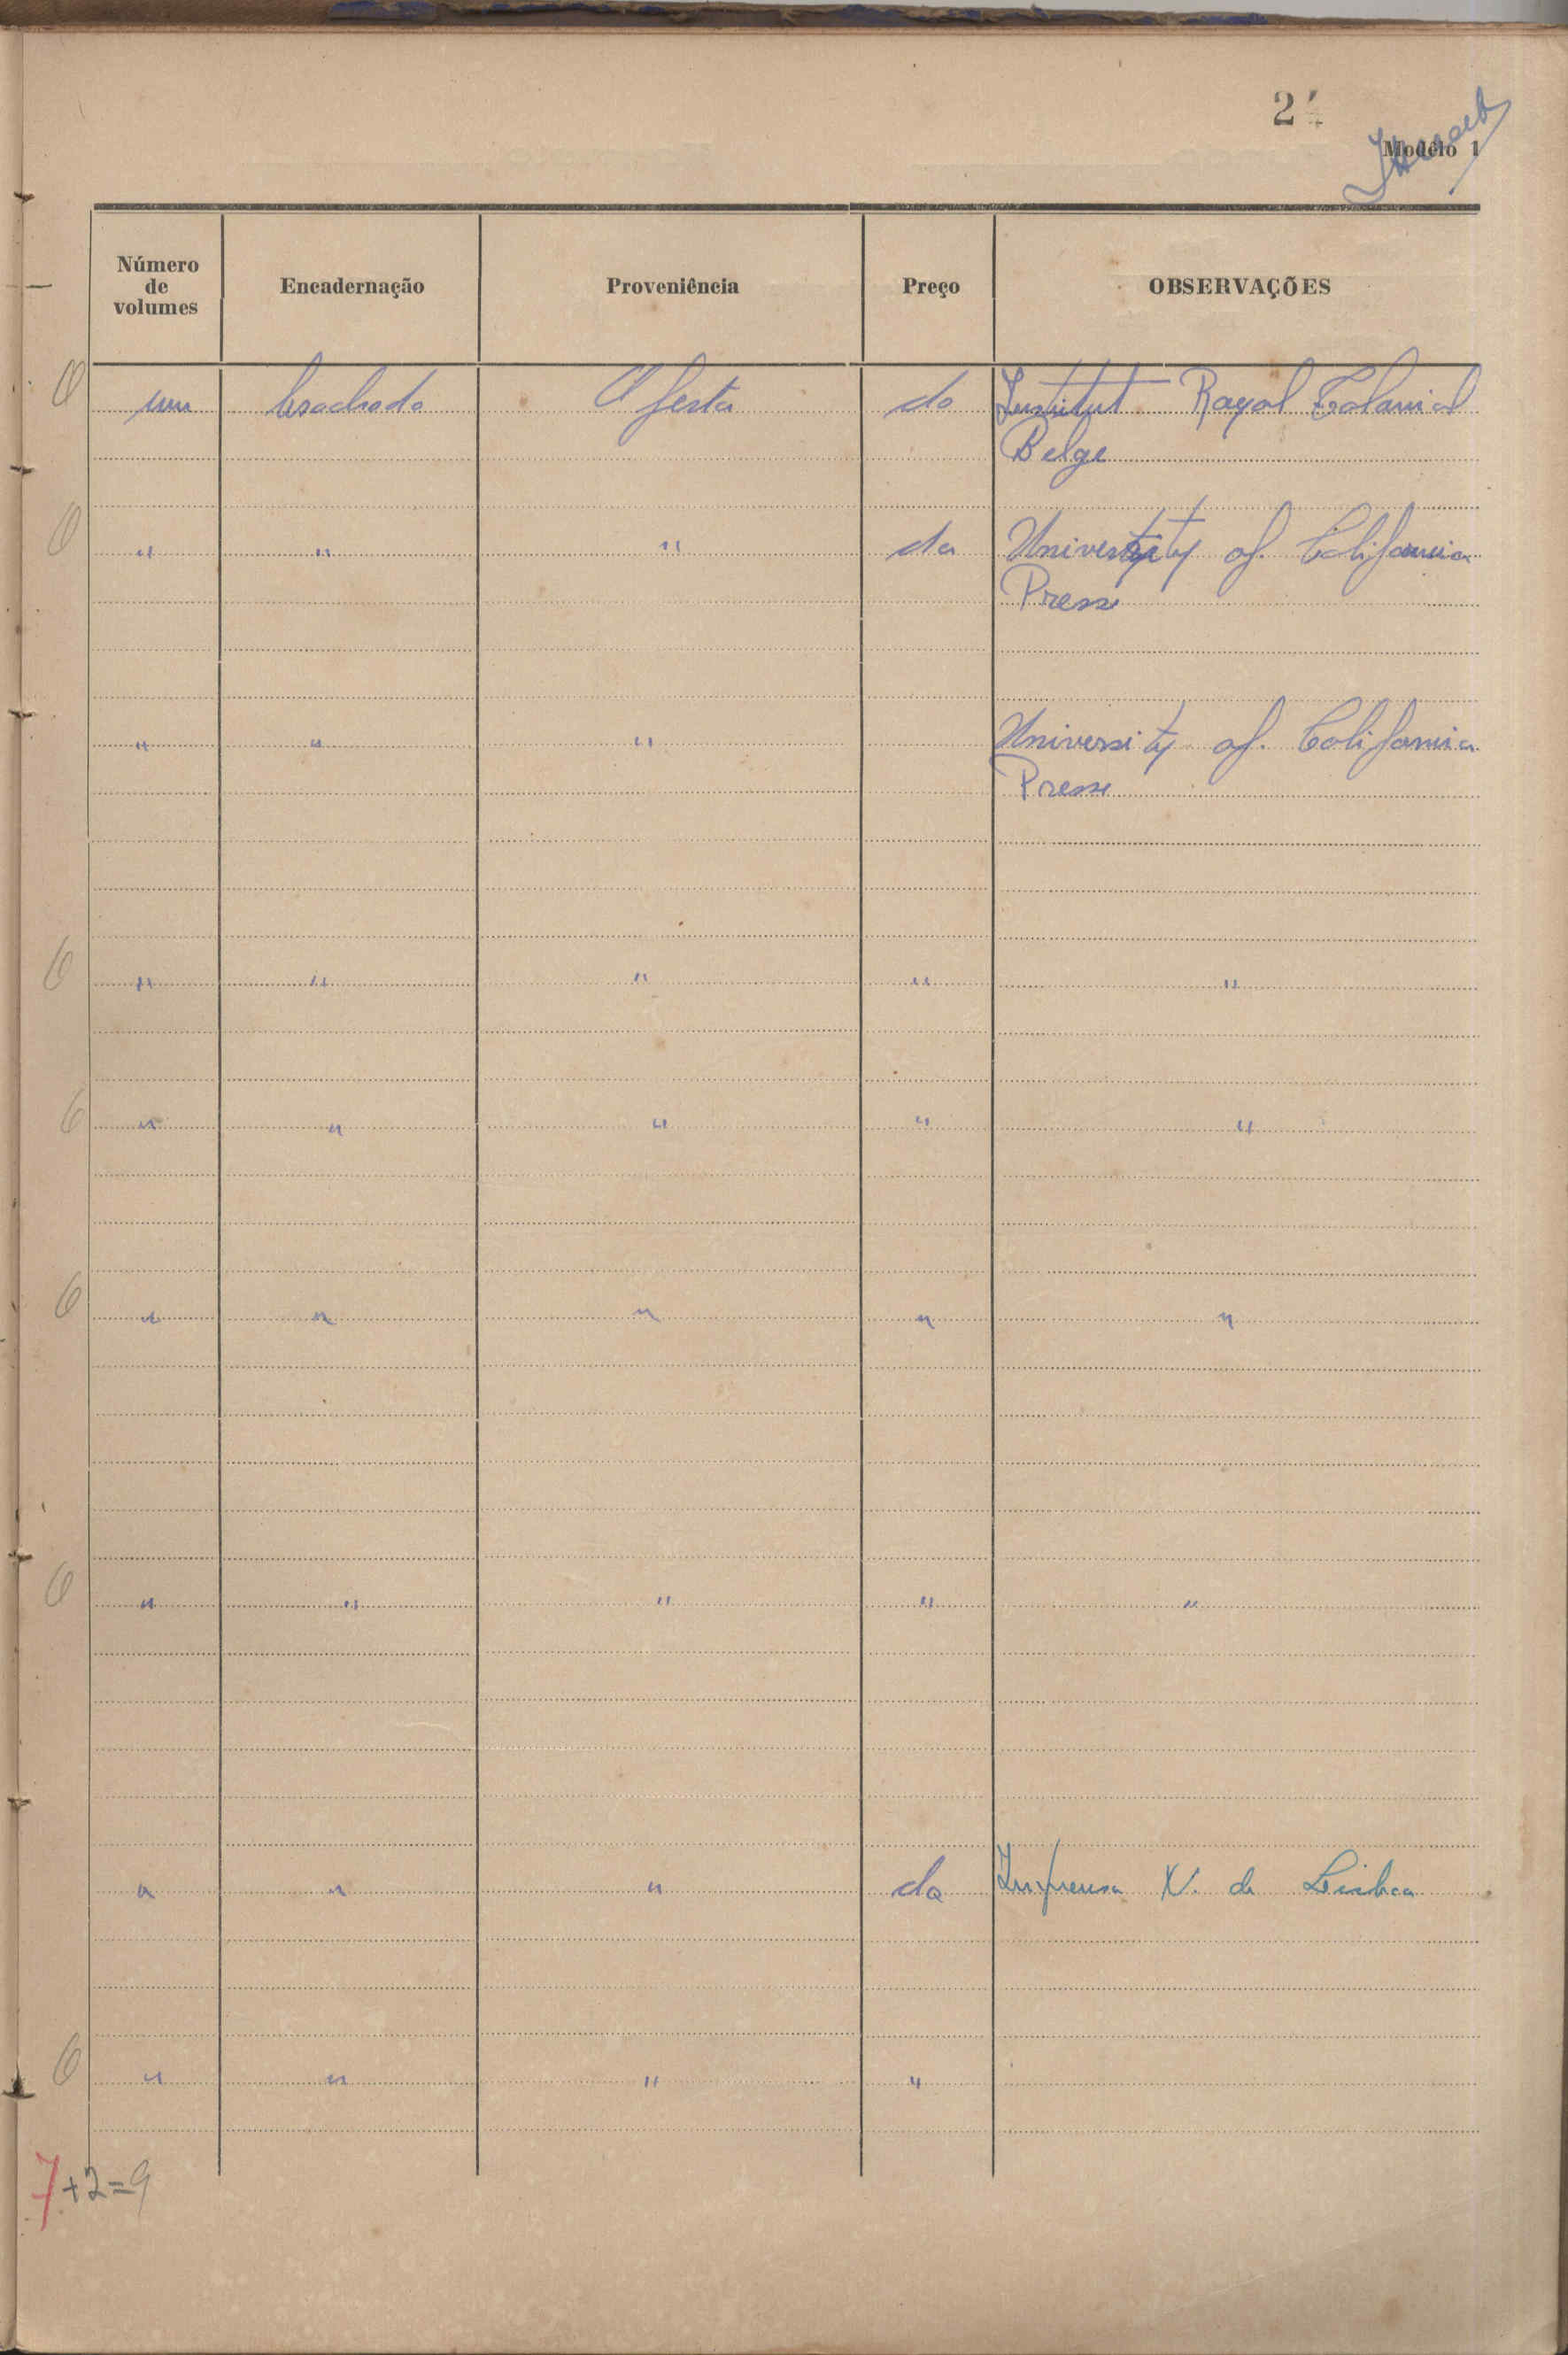 24
Modêlo 1
Número de volumes Encadernação Proveniência Preço OBSERVAÇÕES
um brochado Oferta do Institut Royal Colonial
Belge
" " " da University of. California
Presse
" " " University of. California
Presse
" " " " "
" " " " "
" " " " "
" " " " "
" " " da Imprensa N. de Lisboa
" " " "
7+2=9